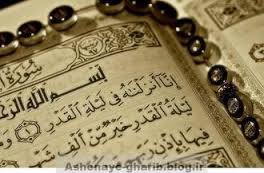 سُورَةُ
بِسْمِ اللَّهِ
إِنَّا أَنزَلْنَاهُ فِي لَيْلَةِ الْقَدْرِ
لَيْلَةُ الْقَدْرِ خَيْرٌ مِّنْ أَلْفِ شَهْرٍ
فِيهَا بِإِذْنِ
Ashenaye-gharib.blog.ir